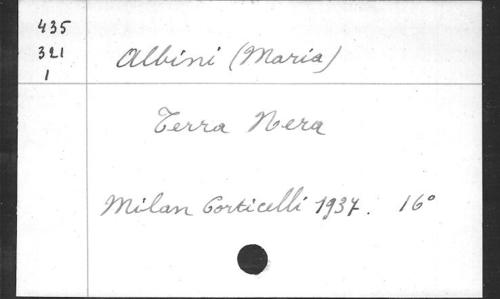 435
321
1
Albini (Maria)
Terra Nera
Milan Corticelli 1937. 16°